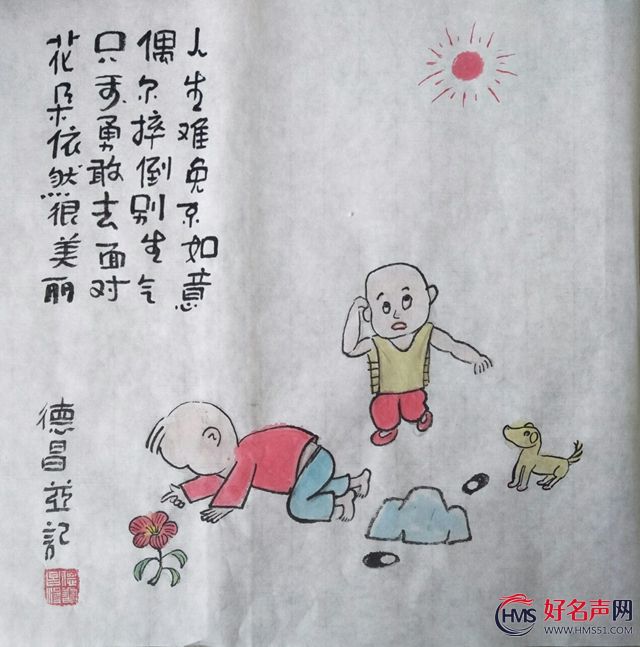 人生难免不如意
偶尔摔倒别生气
只要勇敢去面对
花朵依然很美丽
德昌並記
HMS 好名声网
WWW.HMS51.COM